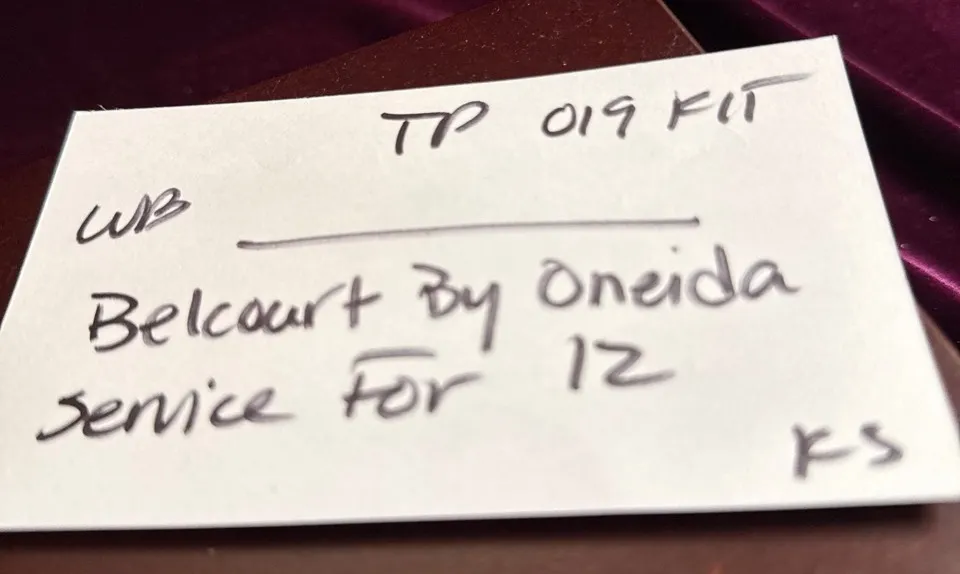 TP 019 KIT
WB
Belcourt By Oneida
service For 12
KS